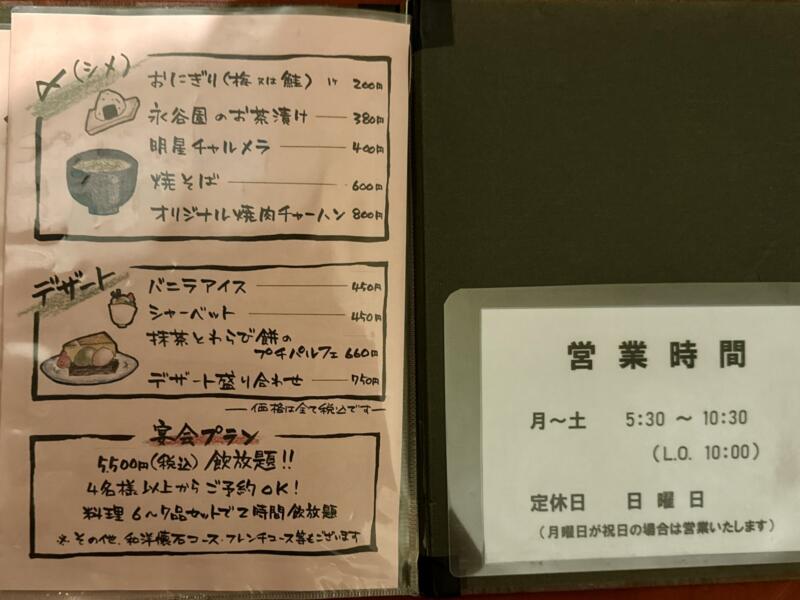 〆(シメ)
おにぎり(梅又は鮭) 1ケ 200円
永谷園のお茶漬け 380円
明星チャルメラ 400円
焼そば 600円
オリジナル焼肉チャーハン 800円
デザート
バニラアイス 450円
シャーベット 450円
抹茶とわらび餅の
プチパルフェ 660円
デザート盛り合わせ 750円
―価格は全て税込です―
宴会プラン
5,500円(税込) 飲放題!!
4名様以上からご予約OK!
料理6~7品セットで2時間飲放題
※その他、和洋懐石コース・フレンチコース等もございます
営業時間
月~土 5:30 ~ 10:30
(L.O. 10:00)
定休日 日曜日
(月曜日が祝日の場合は営業いたします)